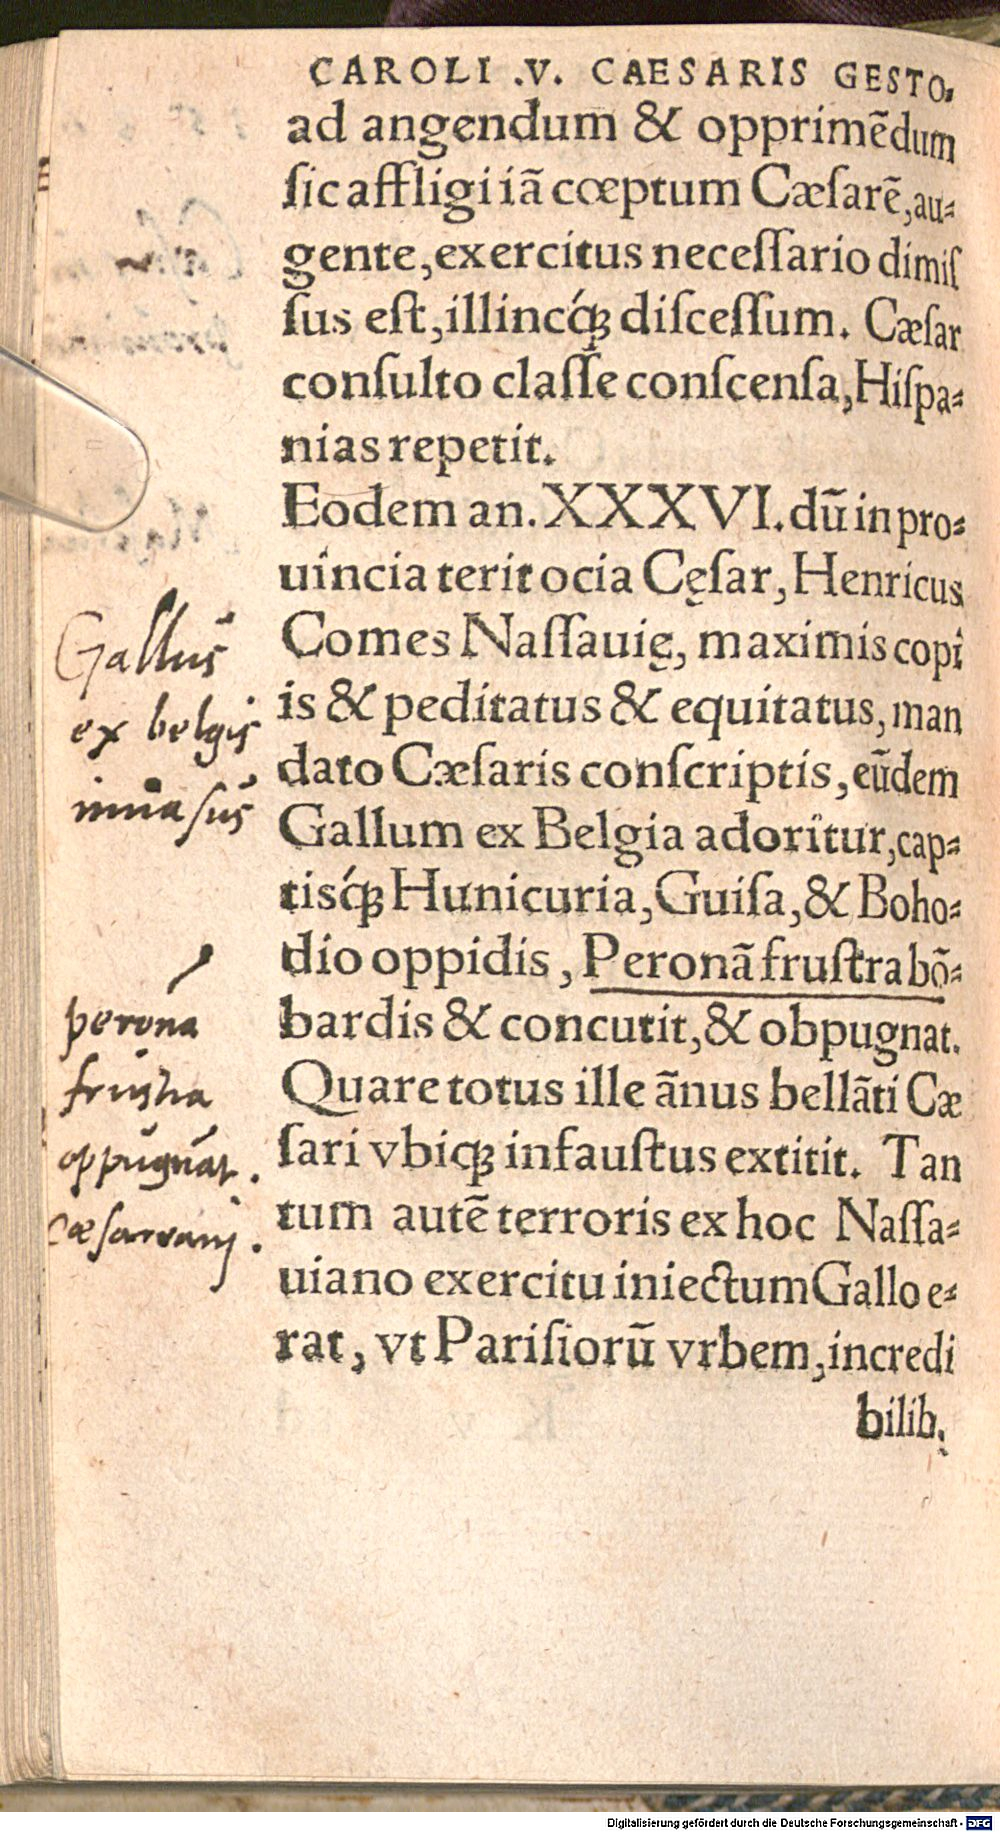 CAROLI .V. CAESARIS GESTO.
ad angendum & opprimẽdum
ſic affligi iã cœptum Cæſarẽ, au-
gente, exercitus neceſſario dimiſ
ſus eſt, illincq́ꝫ diſceſſum. Cæſar
conſulto claſſe conſcenſa, Hiſpa-
nias repetit.
Eodem an. XXXVI. dũ in pro-
uincia terit ocia Cęſar, Henricus
Comes Naſſauię, maximis copi
is & peditatus & equitatus, man
dato Cæſaris conſcriptis, eũdem
Gallum ex Belgia adoritur, cap-
tisq́ꝫ Hunicuria, Guiſa, & Boho-
dio oppidis, Peronã fruſtra bõ-
bardis & concutit, & obpugnat.
Quare totus ille ãnus bellãti Cæ
ſari vbiqꝫ infauſtus extitit. Tan
tum autẽ terroris ex hoc Naſſa-
uiano exercitu iniectum Gallo e-
rat, vt Pariſiorũ vrbem, incredi
bilib.
Gallus
ex belgis
inuasus
perona
frustra
oppugnat.
cæsariani.
Digitalisierung gefördert durch die Deutsche Forschungsgemeinschaft - DFG